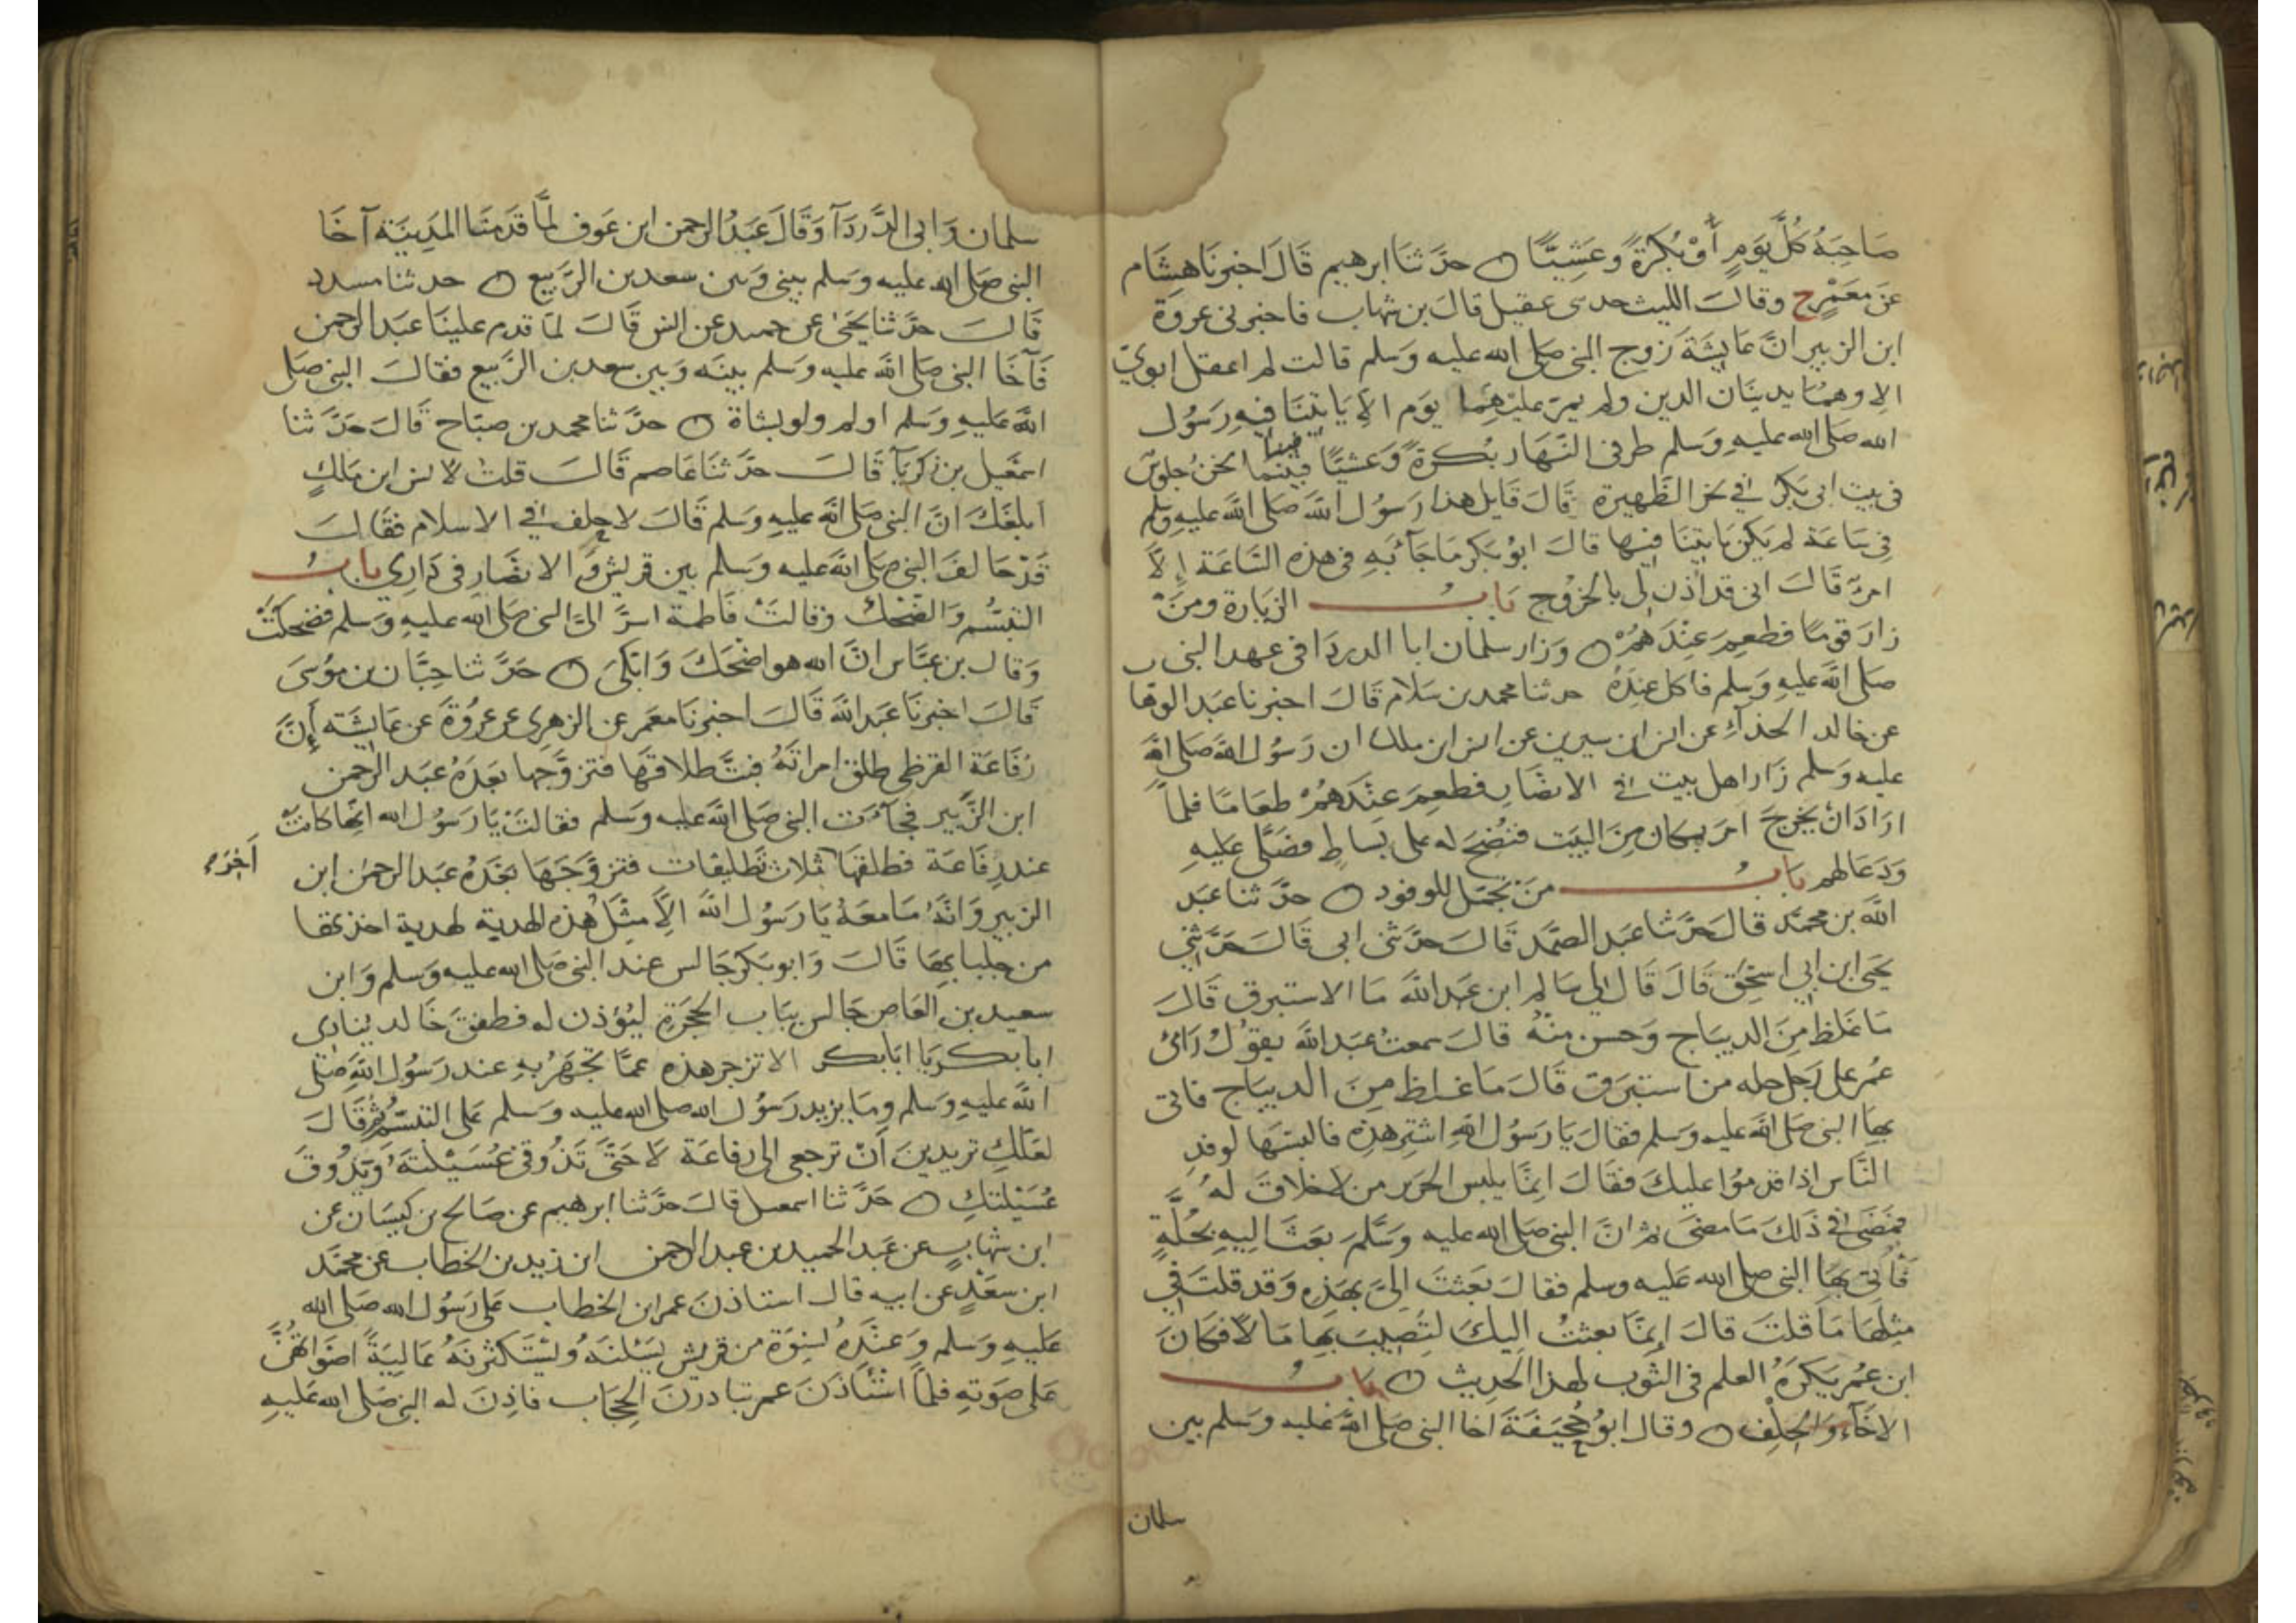 صَاحِبَهُ كُلَّ يَوْمٍ أَوْ بُكْرَةً وَعَشِيًّا ۝ حدَّثنا ابرهيم قَالَ اخبرنَا هِشَام
عَن مَعْمَرٍ ح وقالَ الليث حدىى عقيل قالَ بن شهاب فاخبرنى عروة
ابن الزبير انَّ عَايشَة زوج النبى صَلى الله عليه وَسَلم قالت لم اعقل ابويّ
الا وهمُا يدينَان الدين ولم يمرّ عليْهِما يوَم الا يَاتينَا فِيهِ رَسُول
الله صَلى الله عليهِ وَسَلم طرفى النَهَار بُكرَةً وَعَشيًّا فبينمَا نحنُ جلوسٌ
فى بيت ابى بَكر فى نحر الظَهيرة قَالَ قَايل هذا رَسُول اللهَ صَلى اللهَ عليهِ وسلم
فِى سَاعَة لم يَكن يَاتينَا فيها قالَ ابوُ بَكر مَا جَآءَ بَهِ فى هذه السَاعَة إِلاَّ
امرٌ قَالَ انى قد اُذن لى بالخرُوج بَاب الزيَارة ومنَ
زارَ قومًا فطعِمَ عِنْدَهُمْ ۝ وَزار سلمان ابا الدردَا فى عهد النبى
صَلى اللهَ عَليهِ وَسَلم فاكل عندَهُ حدثنا محمد بن سَلام قَالَ احبرنا عبَد الوها ب
عن خالد الحذآءِ عن انس ابن سيرين عن انس ابن ملك ان رَسُول اللهَ صَلى الله
عليه وَسَلم زَار اهل بيت فى الانصَار فطعِمَ عِنْدَهُمْ طعَامًا فلمآ
ارَادَ انْ يخرجَ امَر بمكان مِنَ البيَت فنُضحَ له على بسَاطٍ فصَلَّى عَليهِ
وَدَعَا لهم بَاب منَ تجمّل للوفود ۝ حدَّثنا عبَد
اللهَ بن محمَّد قالَ حدَّثنا عبَد الصَّمَد قَالَ حدَّثنى ابى قَالَ حَدَّثنِي
يَحيَى ابن ابي اسحٰق قَالَ قَالَ لِي سَالم ابن عَبد اللهَ مَا الاستبرق قَالَ
مَا غَلظ مِنَ الديبَاج وَحسن منْهُ قالَ سمعتُ عبَد اللهَ يقوُلُ رَاىْ
عُمر على رَجل حله من استبرَق قَالَ مَا غَلظ مِنَ الديبَاج فاتى
بهَا النبى صَلى اللهَ عَليهِ وسَلم فقالَ يَا رَسُول اللهِ اشترِ هذِهِ فالبسَهَا لوفدِ
النَّاس اذا قدمُوا عليكَ فقَالَ انمَّا يلبس الحرَير من لا خلاقَ لهُ
فمضَى فى ذَلكَ مَا مضَى ثم انَّ النبى صَلى الله عليه وَسَلَّمَ بعَثَ اليهِ بحُلَّةٍ
فَاتى بهَا النبى صلى الله عَليه وسلم فقالَ بَعَثتَ الِىّ بهَذِه وَقد قلتَ فِي
مثِلهَا مَا قلتَ قالَ اِنمَّا بعثتُ اليكَ لتُصِيبَ بها مَالاً فكَانَ
ابن عُمر يَكرَهُ العلم فى الثوب لهذا الحَدِيث ۝ بَاب
الاخَآءِ وَالحِلْف ۝ وقال ابوُ جُحَيفَةَ اخا النبى صَلى الله عَليه وسَلم بين
سلمان
سلمان وَابى الدَّردَآءِ وَقَالَ عَبَدُ الرحمن ابن عَوف لمَّا قَدَمنَا المَدِينَة آخَا
النبى صَلى الله عليه وسَلم بينى وَبين سعد بن الرَّبيع ۝ حدثنا مسدد
قَالَ حدَّثنا يَحيَى عن حميد عن انس قَالَ لمَا قدم علينَا عبَد الرحمن
فَآخَا النبى صَلى اللهَ عليهِ وَسَلم بينَه وَبين سعد بن الرَّبيع فقالَ النبى صَلى
اللهَ عَليهِ وَسَلم اولم ولو بشاة ۝ حدَّثنا محمد بن صبَّاح قَالَ حَدَّثنا
اسمَعيل بن زكريَآ قَالَ حدَّثنَا عَاصم قَالَ قلتُ لانس ابن مَالكٍ
ابلَغَكَ انَّ النبى صَلى اللهَ عليهِ وَسَلم قَالَ لا حِلف في الاسلام فقَالَ
قَدْ حَالفَ النبى صَلى اللهَ عَليه وَسَلم بين قريش وَ الانصَار فى دَارِي بَاب
التبسُّم وَالضحْك وَقالتَ فَاطمة اسرَّ الىَّ النبى صَلى الله عَليهِ وَسَلم فضحكتُ
وَقال بن عبَّاس انَّ الله هو اضْحَكَ وَابْكىَ ۝ حَدَّثنا حِبَّان بن مُوسَى
قَالَ اخبرنَا عَبَد اللهَ قَالَ احبرنَا معمَر عن الزهرى عن عروُةَ عن عَايشَته أِنَّ
رَفَاعَة القرظى طلق امراتَهُ فبتَّ طلاقهَا فتزوَّجها بَعدَهُ عبَد الرحمن
ابن الزَّبير فجآءَت النبى صَلى اللهَ عَليه وسَلم فقالتْ يَا رَسُول الله انهَا كانتْ
عند رِفَاعَة فطلقهَا ثلاث تَطليقات فتزوَّجَهَا بَعَدَهُ عبَد الرحمٰن ابن آخِرَ
الزبير وَانَّهُ مَا معَهُ يَا رَسُول اللهَ الاَّ مثِلَ هذه الهدبة لهدبة اخذتها
من جلبابهَا قَالَ وَابو بَكر جَالس عند النبى صَلى الله عليه وسَلم وَابن
سعيد بن العَاص جَالس ببَاب الحجَرَةِ ليُؤذن له فطفقَ خَالد ينادى
ابا بكر يَا ابَا بكر الا تزجر هذهِ عمَّا تجَهَرُ بهِ عند رَسُول اللهَ صَلى
اللهَ عليه وَسَلم ومَا يزيد رَسُول الله صلى الله عليه وَسَلم عَلى التبسّمُ ثُمّ قَالَ
لعَلَّكِ تريدينَ اَنْ ترجعى الى رفاعَة لاَ حَتَّى تَذُوقى عُسَيْلتَهُ وَيَذُوقَ
عُسَيْلتكِ ۝ حَدَّثنا اسمعيل قالَ حدَّثنا ابرهيم عن صَالح بن كيسَان عن
ابن شهَابٍ عن عَبَد الحميد بن عبد الرحمن ابن زيد بن الخطاب عن محَمَّد
ابن سعَدٍ عن ابيه قال استاذنَ عمر ابن الخطاب عَلى رَسُول الله صَلى الله
عَليهِ وَسَلم وَعنْدَهُ نسِوَة من قريش يَسَئلنَهُ وَيَستَكثرنهُ عَاليَةً اصَوَاتُهُنَّ
عَلى صَوَتهِ فلمَّا اسْتَأذَنَ عمر تبادرنَ الحِجَاب فاذِنَ له النبى صَلى الله عَليهِ